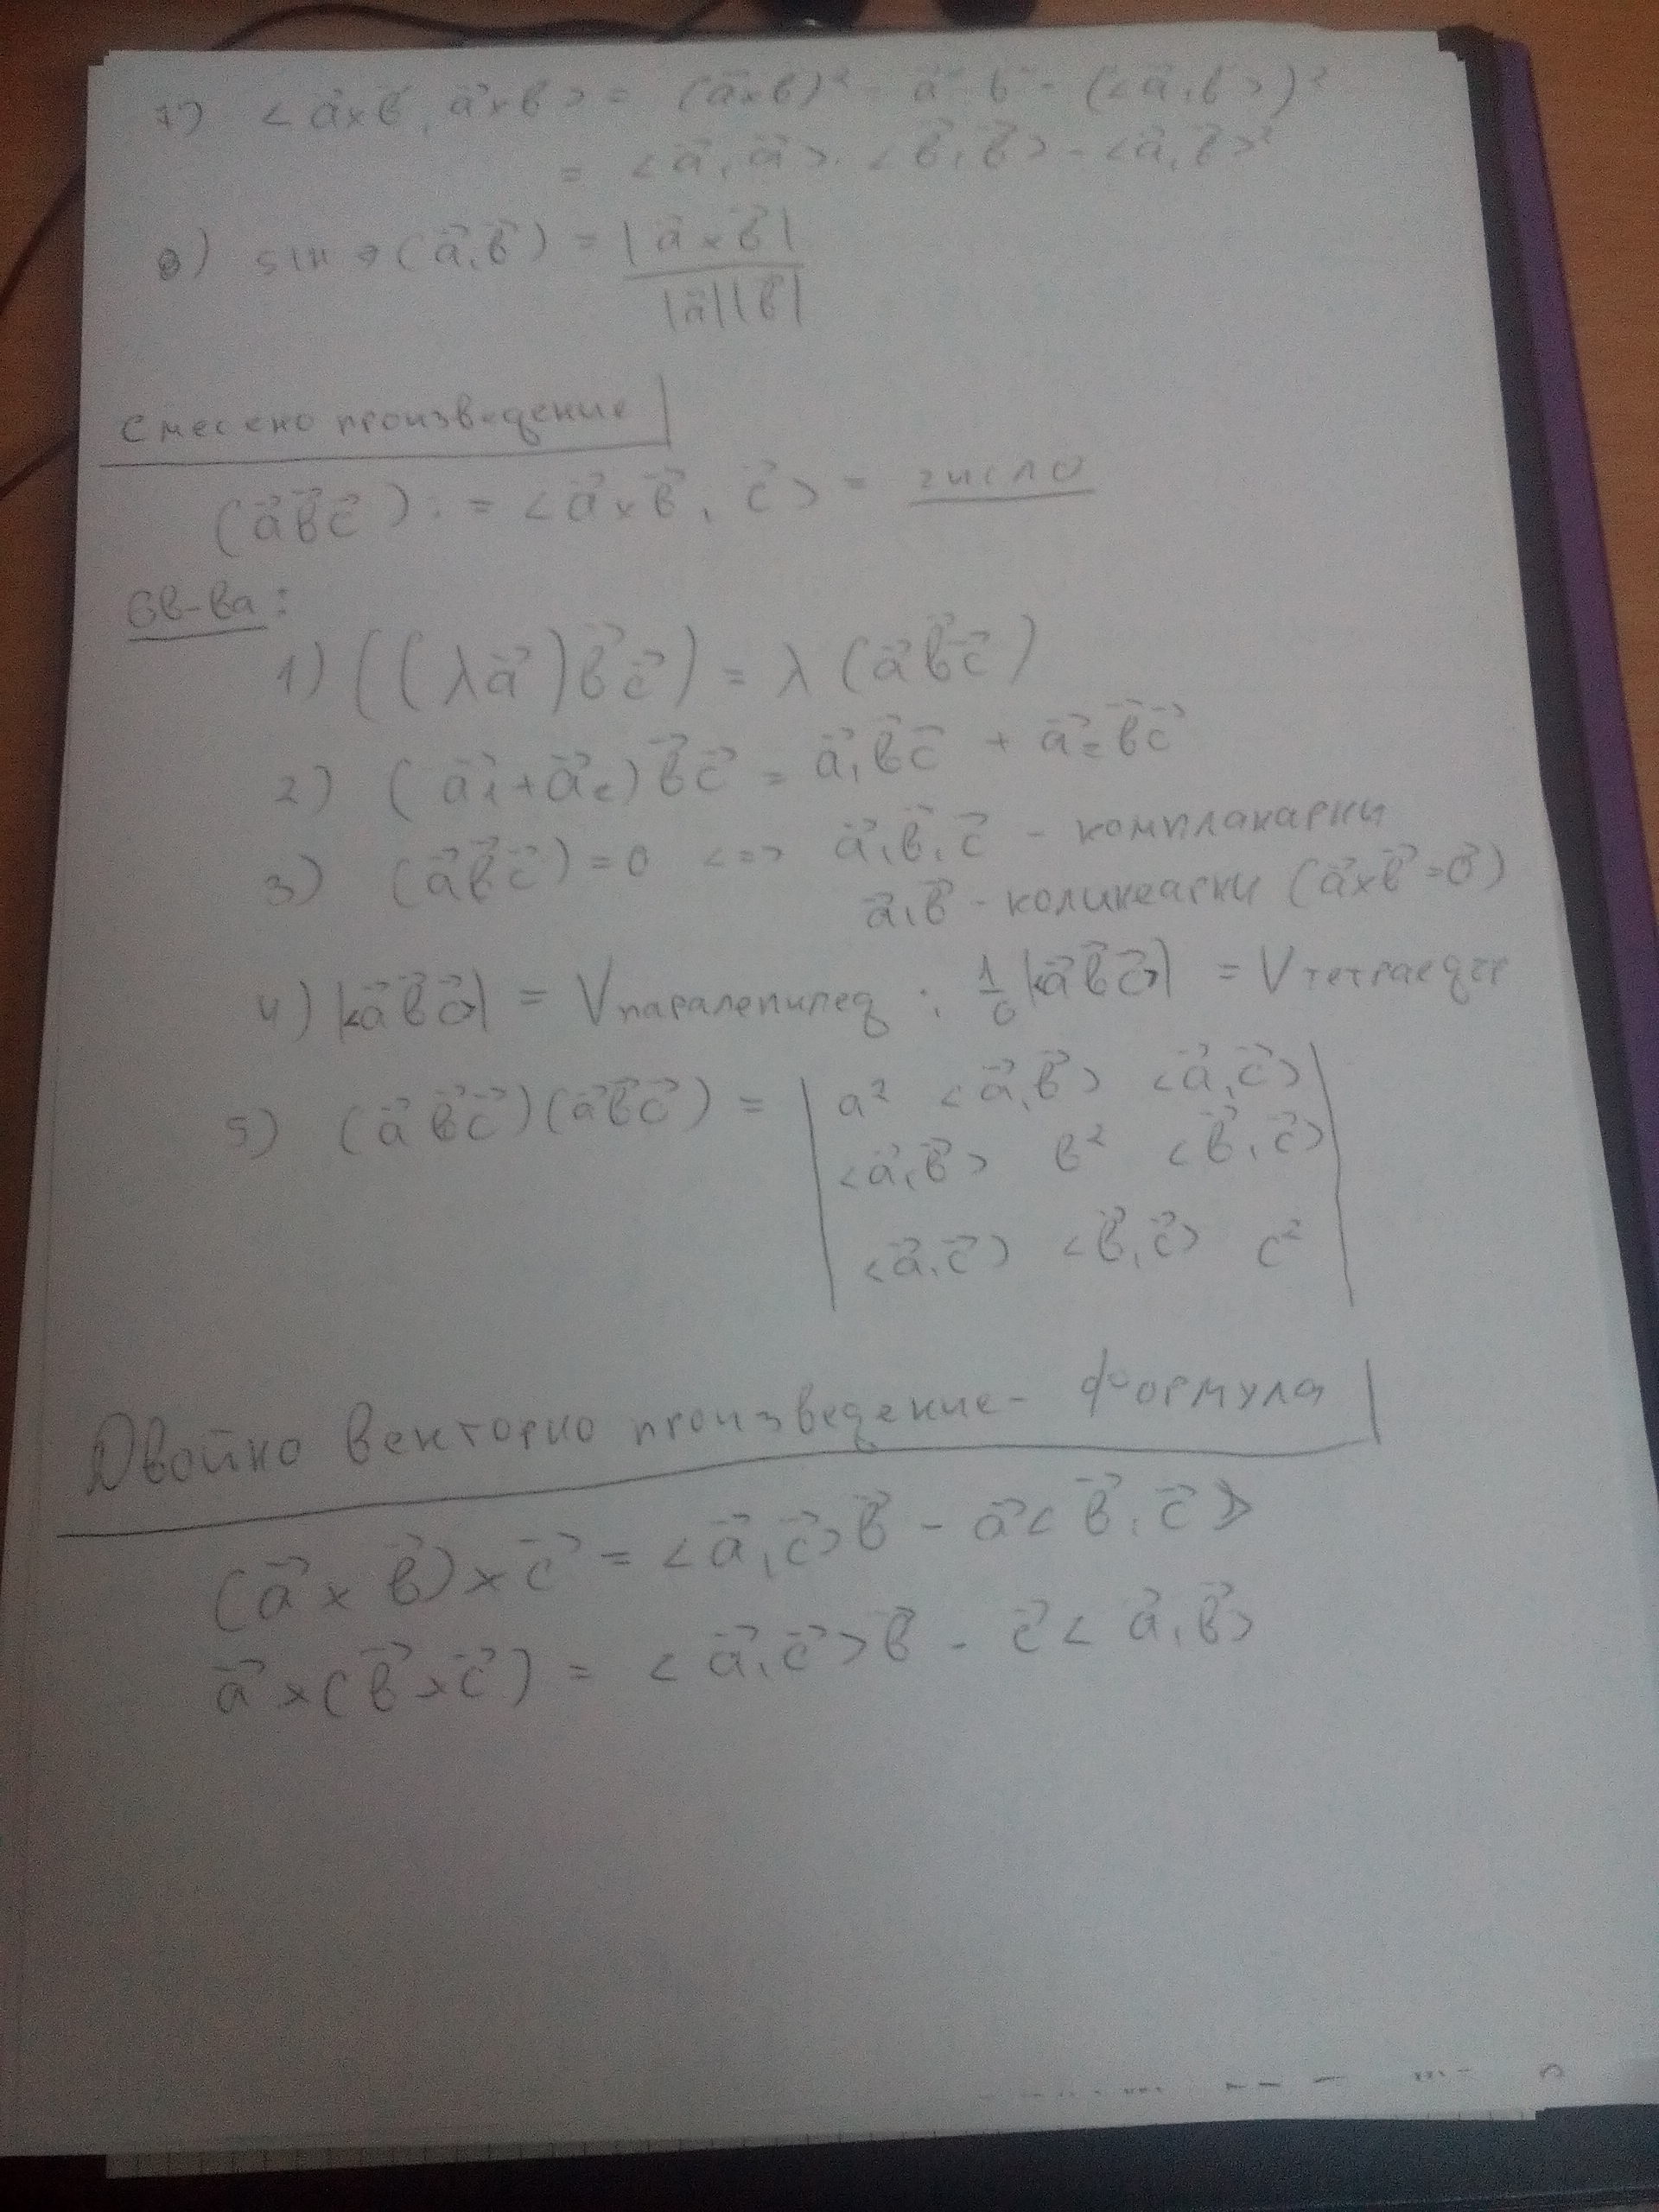 7) < a⃗×b⃗, a⃗×b⃗ > = (a⃗×b⃗)² = a⃗² b⃗² - (<a⃗,b⃗>)²
= <a⃗,a⃗>.<b⃗,b⃗> - <a⃗,b⃗>²
8) sin ∢(a⃗,b⃗) = |a⃗×b⃗| / |a⃗||b⃗|
Смесено произведение
(a⃗b⃗c⃗) := <a⃗×b⃗, c⃗> = число
Св-ва:
1) ((λa⃗)b⃗c⃗) = λ(a⃗b⃗c⃗)
2) (a⃗₁+a⃗₂)b⃗c⃗ = a⃗₁b⃗c⃗ + a⃗₂b⃗c⃗
3) (a⃗b⃗c⃗)=0 <=> a⃗,b⃗,c⃗ - компланарни
a⃗,b⃗ - колинеарни (a⃗×b⃗=0⃗)
4) |<a⃗b⃗c⃗>| = V паралепипед ; 1/6 |<a⃗b⃗c⃗>| = V тетраедър
5) (a⃗b⃗c⃗)(a⃗b⃗c⃗) = | a² <a⃗,b⃗> <a⃗,c⃗> |
<a⃗,b⃗> b² <b⃗,c⃗>
<a⃗,c⃗> <b⃗,c⃗> c²
Двойно векторно произведение - формула
(a⃗×b⃗)×c⃗ = <a⃗,c⃗>b⃗ - a⃗<b⃗,c⃗>
a⃗×(b⃗×c⃗) = <a⃗,c⃗>b⃗ - c⃗<a⃗,b⃗>